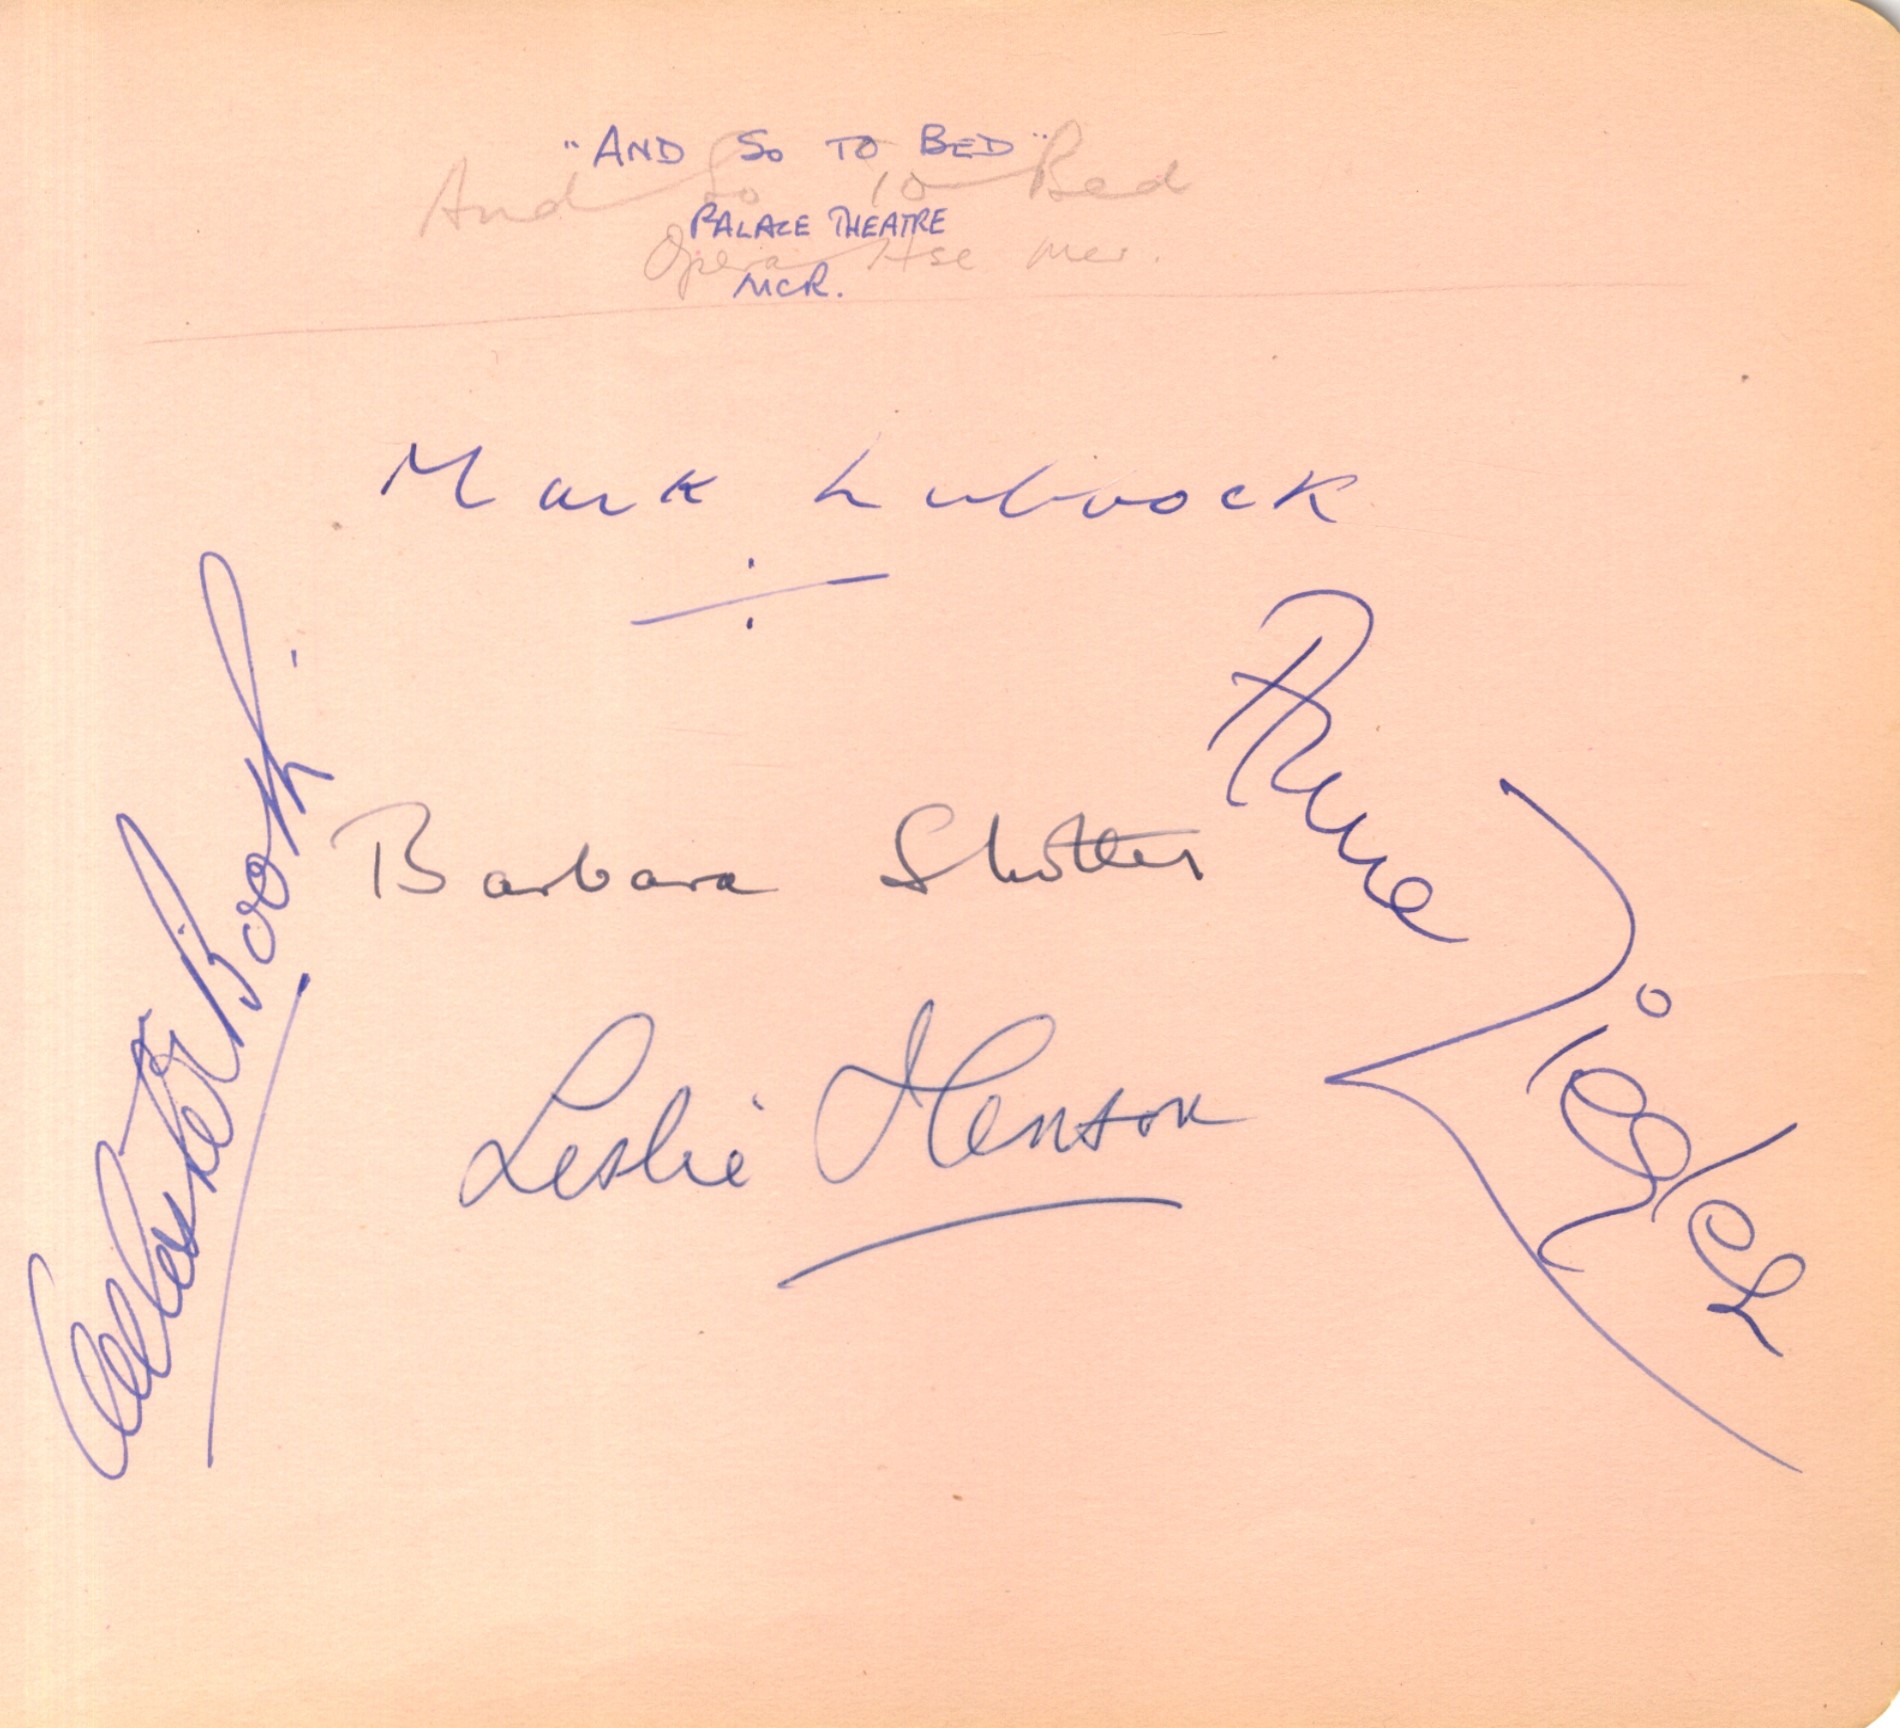 "AND SO TO BED"
And So To Bed
PALACE THEATRE
Opera Hse Mcr.
MCR.
Mark Lubbock
Webster Booth
Anne Ziegler
Barbara Shotter
Leslie Henson